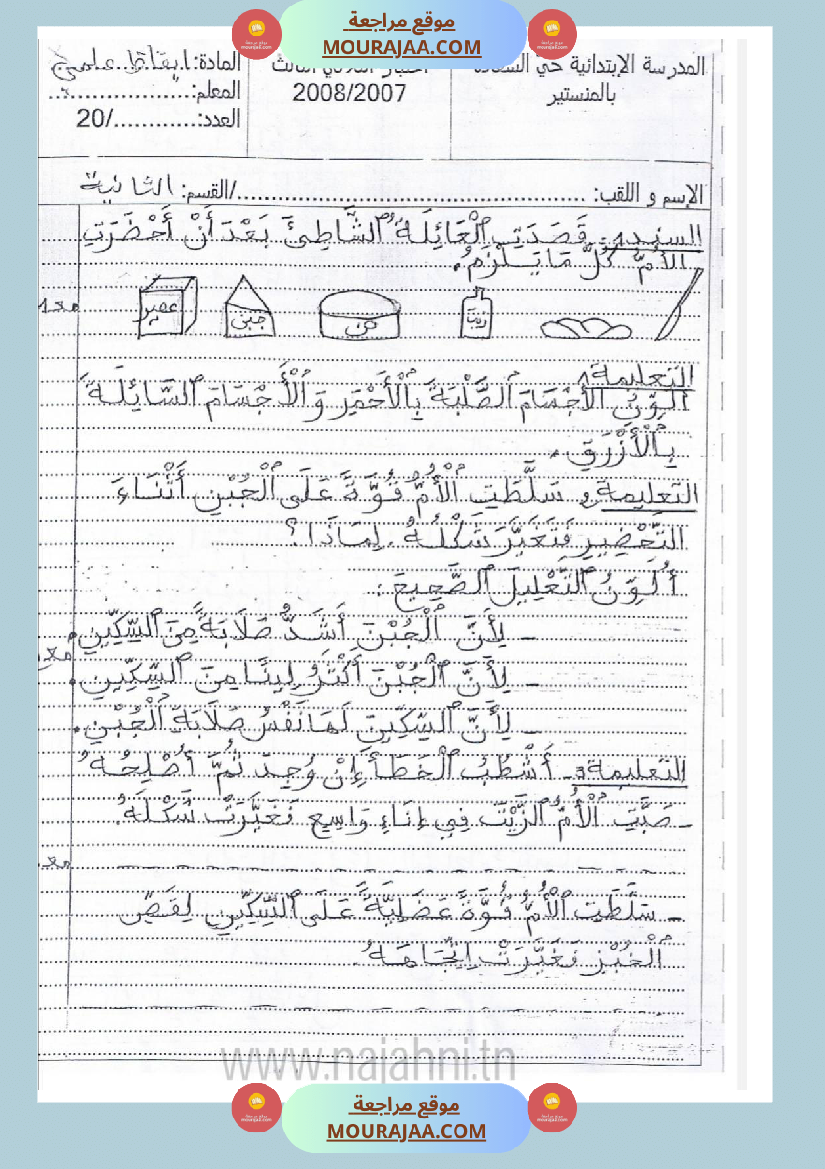 موقع مراجعة
MOURAJAA.COM
المدرسة الإبتدائية حي
بالمنستير
2008/2007
المادة: ايقاظ علمي
المعلم:
العدد: ............/20
الإسم و اللقب: ................................................/القسم: الثانية
السند 1: قَصَدَتِ ٱلْعَائِلَةُ ٱلشَّاطِئَ بَعْدَ أَنْ أَحْضَرَتِ
ٱلْأُمُّ كُلَّ مَا يَلْزَمُ.
عصير
جبن
زيت
مع1
التعليمة 1
أُلَوِّنُ ٱلْأَجْسَامَ ٱلصَّلْبَةَ بِٱلْأَحْمَرِ وَ ٱلْأَجْسَامَ ٱلسَّائِلَةَ
بِٱلْأَزْرَقِ.
التعليمة 2: سَلَّطَتِ ٱلْأُمُّ قُوَّةً عَلَى ٱلْجُبْنِ أَثْنَاءَ
ٱلتَّحْضِيرِ فَتَغَيَّرَ شَكْلُهُ. لِمَاذَا؟
أُلَوِّنُ ٱلتَّعْلِيلَ ٱلصَّحِيحَ:
- لِأَنَّ ٱلْجُبْنَ أَشَدُّ صَلَابَةً مِنَ ٱلسِّكِّينِ.
- لِأَنَّ ٱلْجُبْنَ أَكْثَرُ لِينًا مِنَ ٱلسِّكِّينِ.
- لِأَنَّ ٱلسِّكِّينَ لَهَا نَفْسُ صَلَابَةِ ٱلْجُبْنِ.
التعليمة 3- أَشْطُبُ ٱلْخَطَأَ إِنْ وُجِدَ ثُمَّ أُصْلِحُهُ
- صَبَّتِ ٱلْأُمُّ ٱلزَّيْتَ فِي إِنَاءٍ وَاسِعٍ فَغَيَّرَتْ شَكْلَهُ.
- سَلَّطَتِ ٱلْأُمُّ قُوَّةً عَضَلِيَّةً عَلَى ٱلسِّكِّينِ لِقَصِّ
ٱلْخُبْزِ فَغَيَّرَتْ اِتِّجَاهَهُ
www.najahni.tn
موقع مراجعة
MOURAJAA.COM